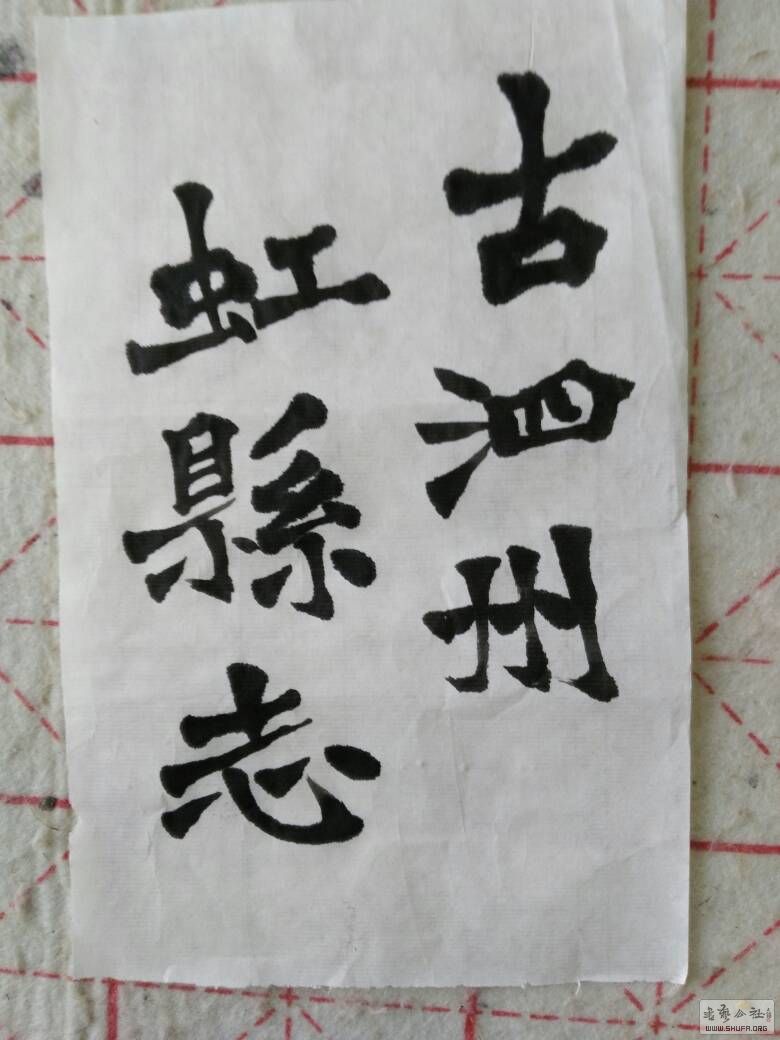 古泗州
虹縣志
书艺公社
WWW.SHUFA.ORG